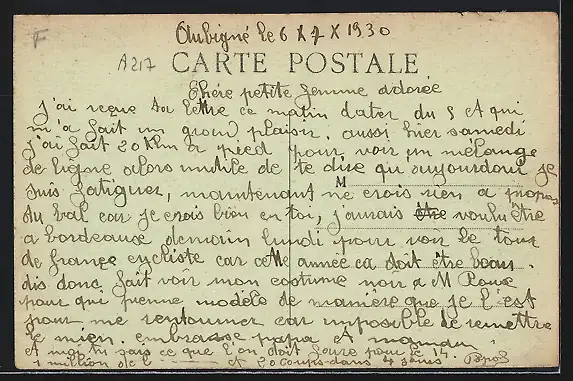 Aubigné le 6 X 7 X 1930
A217
CARTE POSTALE
Chére petite femme adorée
J'ai reçue ta lettre ce matin dater du 5 et qui
m'a fait un grand plaisir. aussi hier samedi
j'ai fait 20 Klm a pied pour voir un mélange
de ligne alors inutile de te dire qu'aujourdoui je
suis fatiguer, maintenant ne crois rien a propos
du bal car je crois bien en toi, j'aurais être voulu être
M
a bordeaux demain lundi pour voir le tour
de france cycliste car cette année ca doit être beau.
dis donc fait voir mon costume noir a M Roux
pour qui prenne modèle de manière que je l'est
pour me retourner car impossible de remettre
le mien. embrasse papa et maman
et moi tu sais ce que l'on doit faire pour le 14.
1 million de et 20 coups dans 4 jours